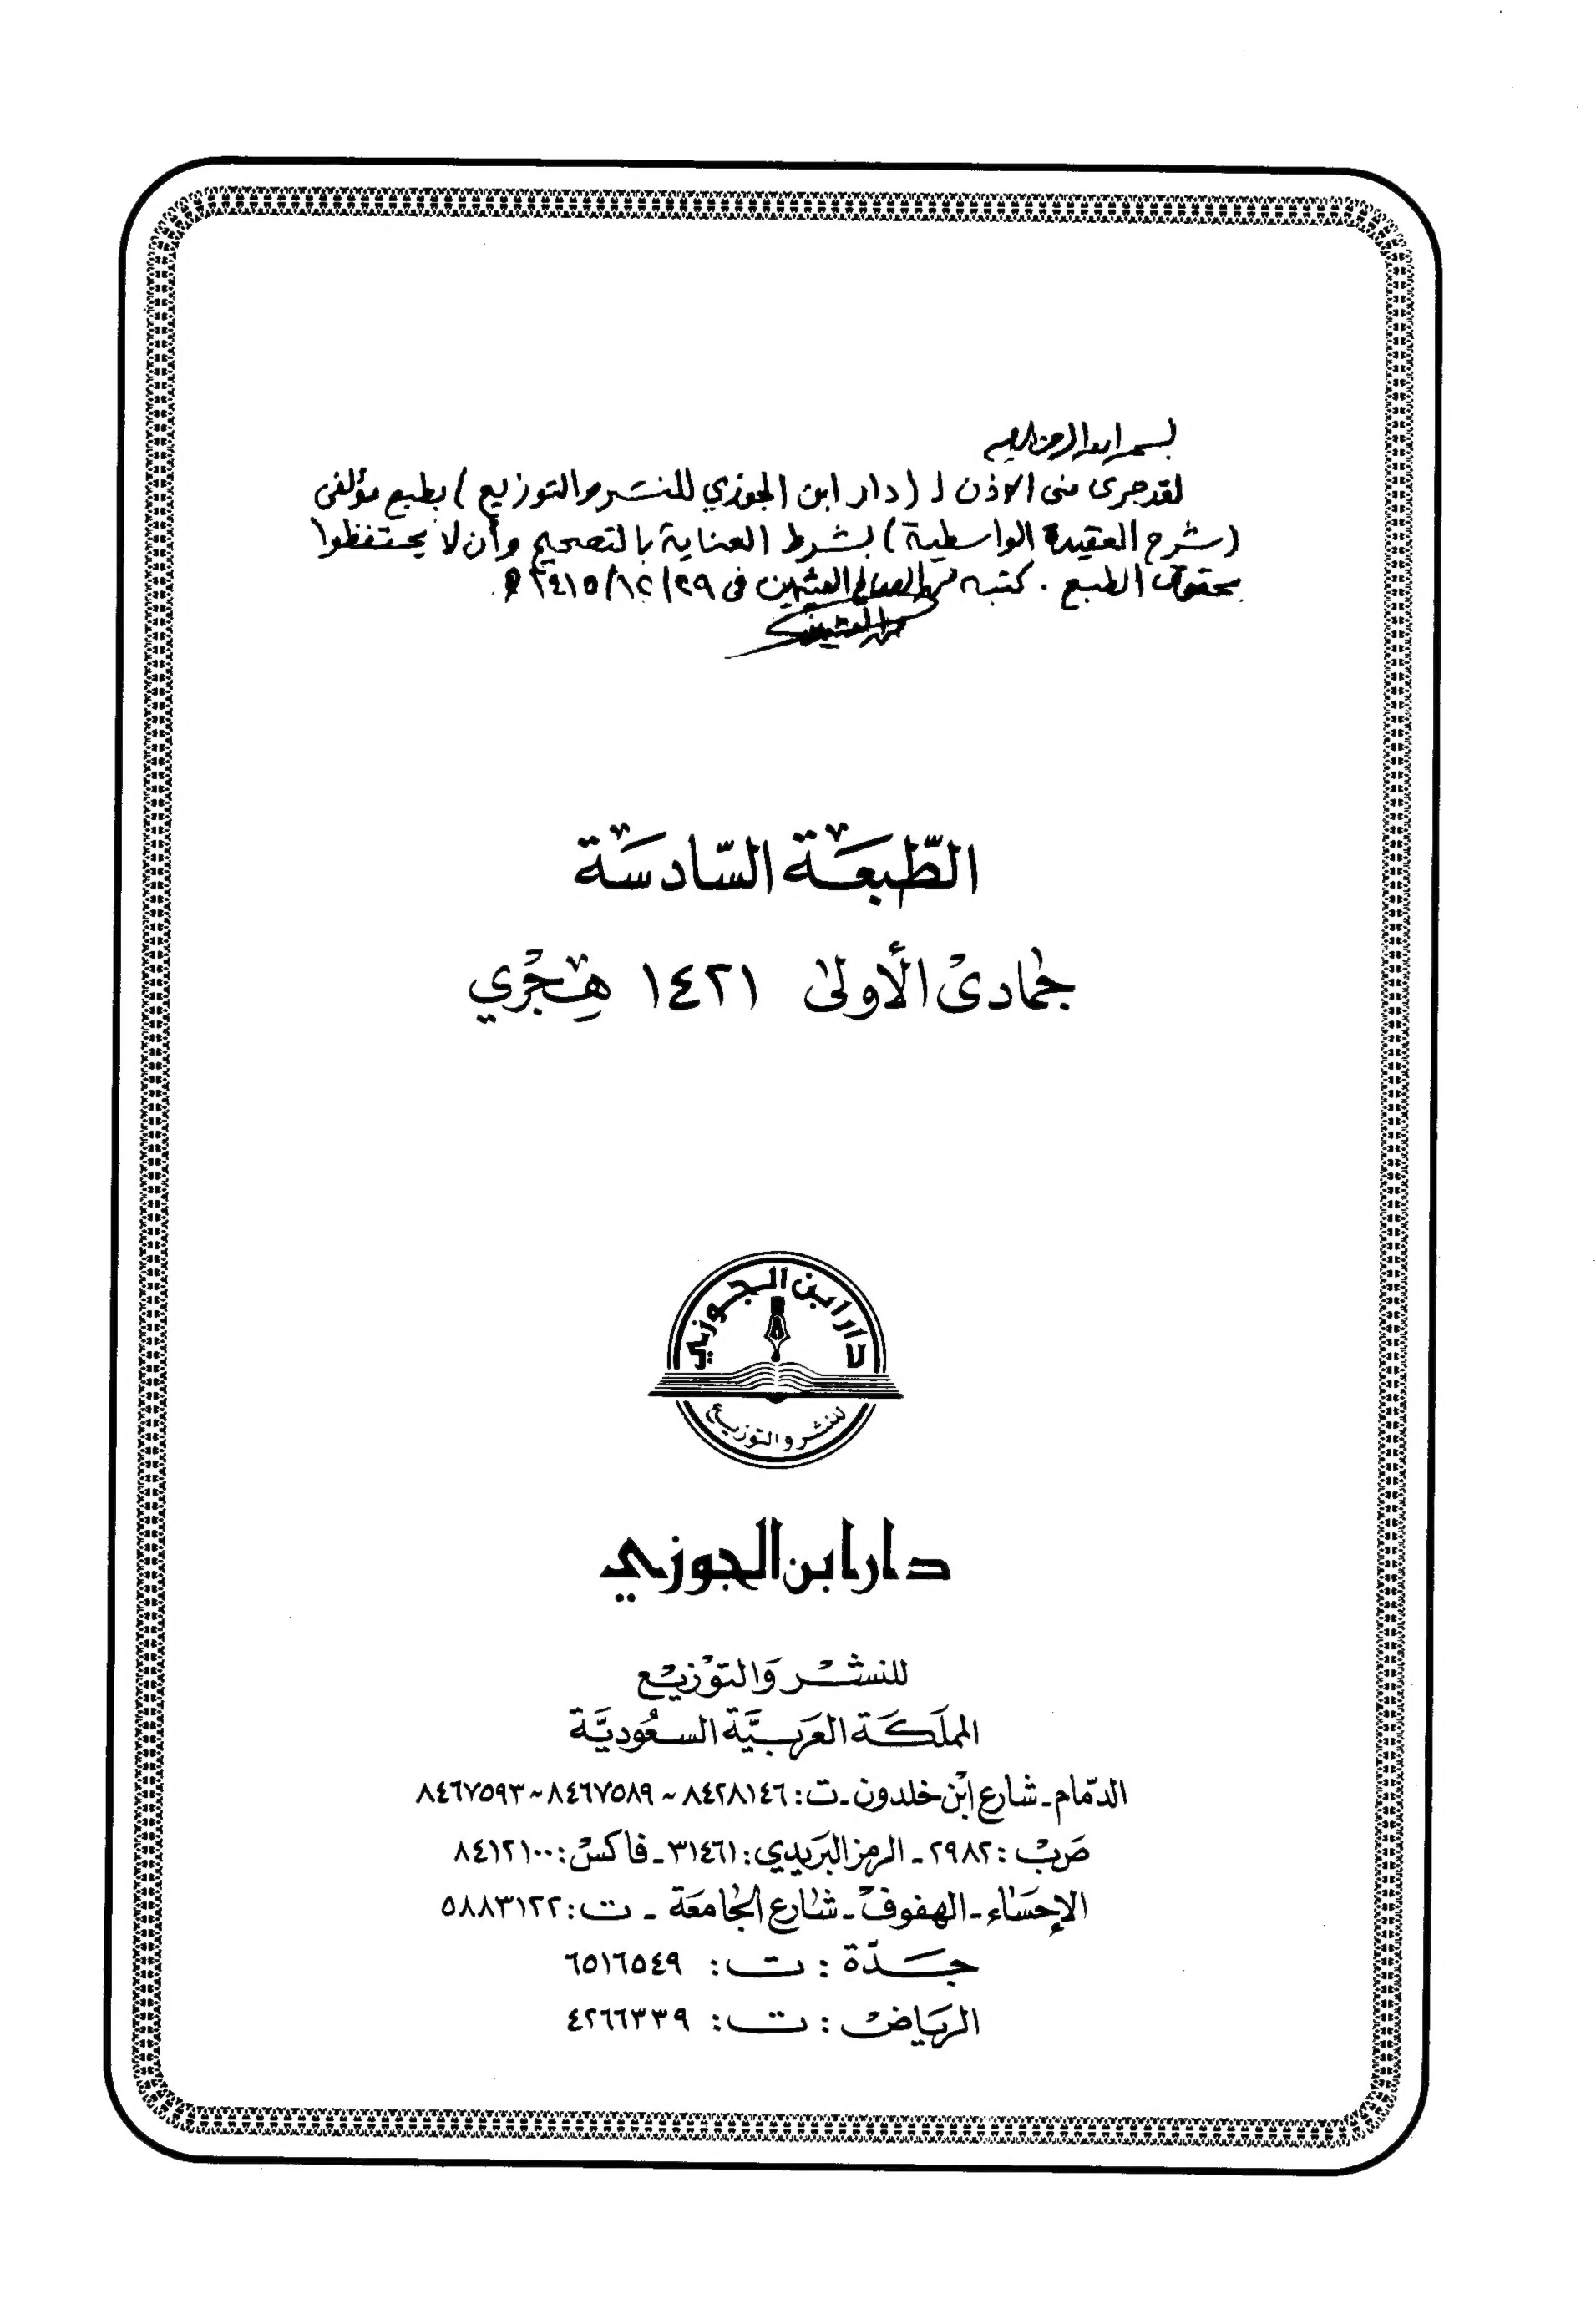 بسم الله الرحمن الرحيم
لقد جرى منى الاذن لـ (دار ابن الجوزي للنشر والتوزيع) بطبع مؤلفى
(شرح العقيدة الواسطية) بشرط العناية بالتصحيح وأن لا يحتفظوا
بحقوق الطبع . كتبه محمد الصالح العثيمين فى ٢٩/١٢/١٤١٥ هـ.
محمد العثيمين
الطّبعَة السّادسَة
جمادىْ الأولىٰ ١٤٢١ هِجْري
دار ابن الجوزي
للنشر والتوزيع
دار ابن الجوزي
للنشْر وَالتوْزيْع
المملَكَة العَربيَّة السعُوديَّة
الدمّام - شارع ابْن خلدون - ت: ٨٤٢٨١٤٦ ~ ٨٤٦٧٥٨٩ ~ ٨٤٦٧٥٩٣
صَ بْ: ٢٩٨٢ - الرمز البَريدي: ٣١٤٦١ - فاكسْ: ٨٤١٢١٠٠
الإحسَاء - الهفوفْ - شارع الجَامعَة - ت: ٥٨٨٣١٢٢
جَدّة : ت: ٦٥١٦٥٤٩
الريَاضْ : ت: ٤٢٦٦٣٣٩